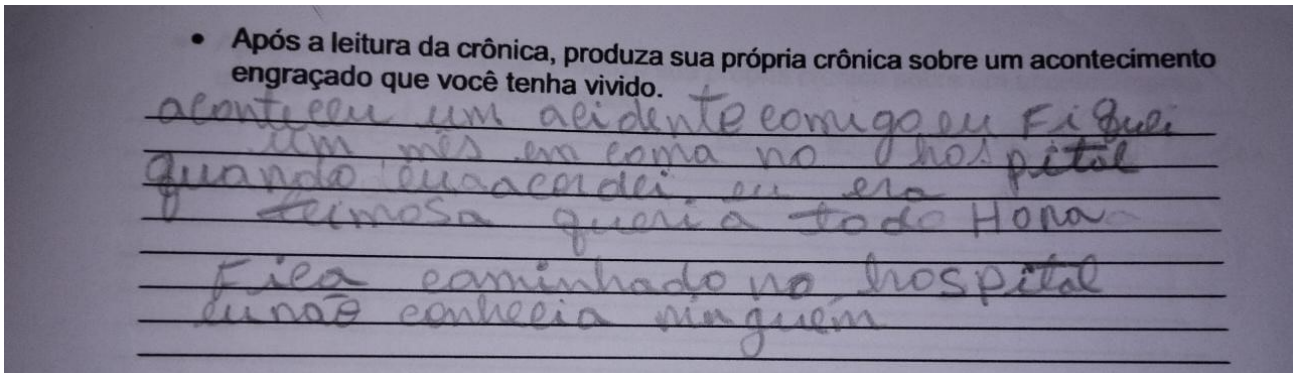 • Após a leitura da crônica, produza sua própria crônica sobre um acontecimento
engraçado que você tenha vivido.
aconteceu um acidente comigo eu Fiquei
um mês em coma no hospital
quando eu acordei eu era
teimosa queria todo Hora
Fica caminhado no hospital
eu não conhecia ninguém